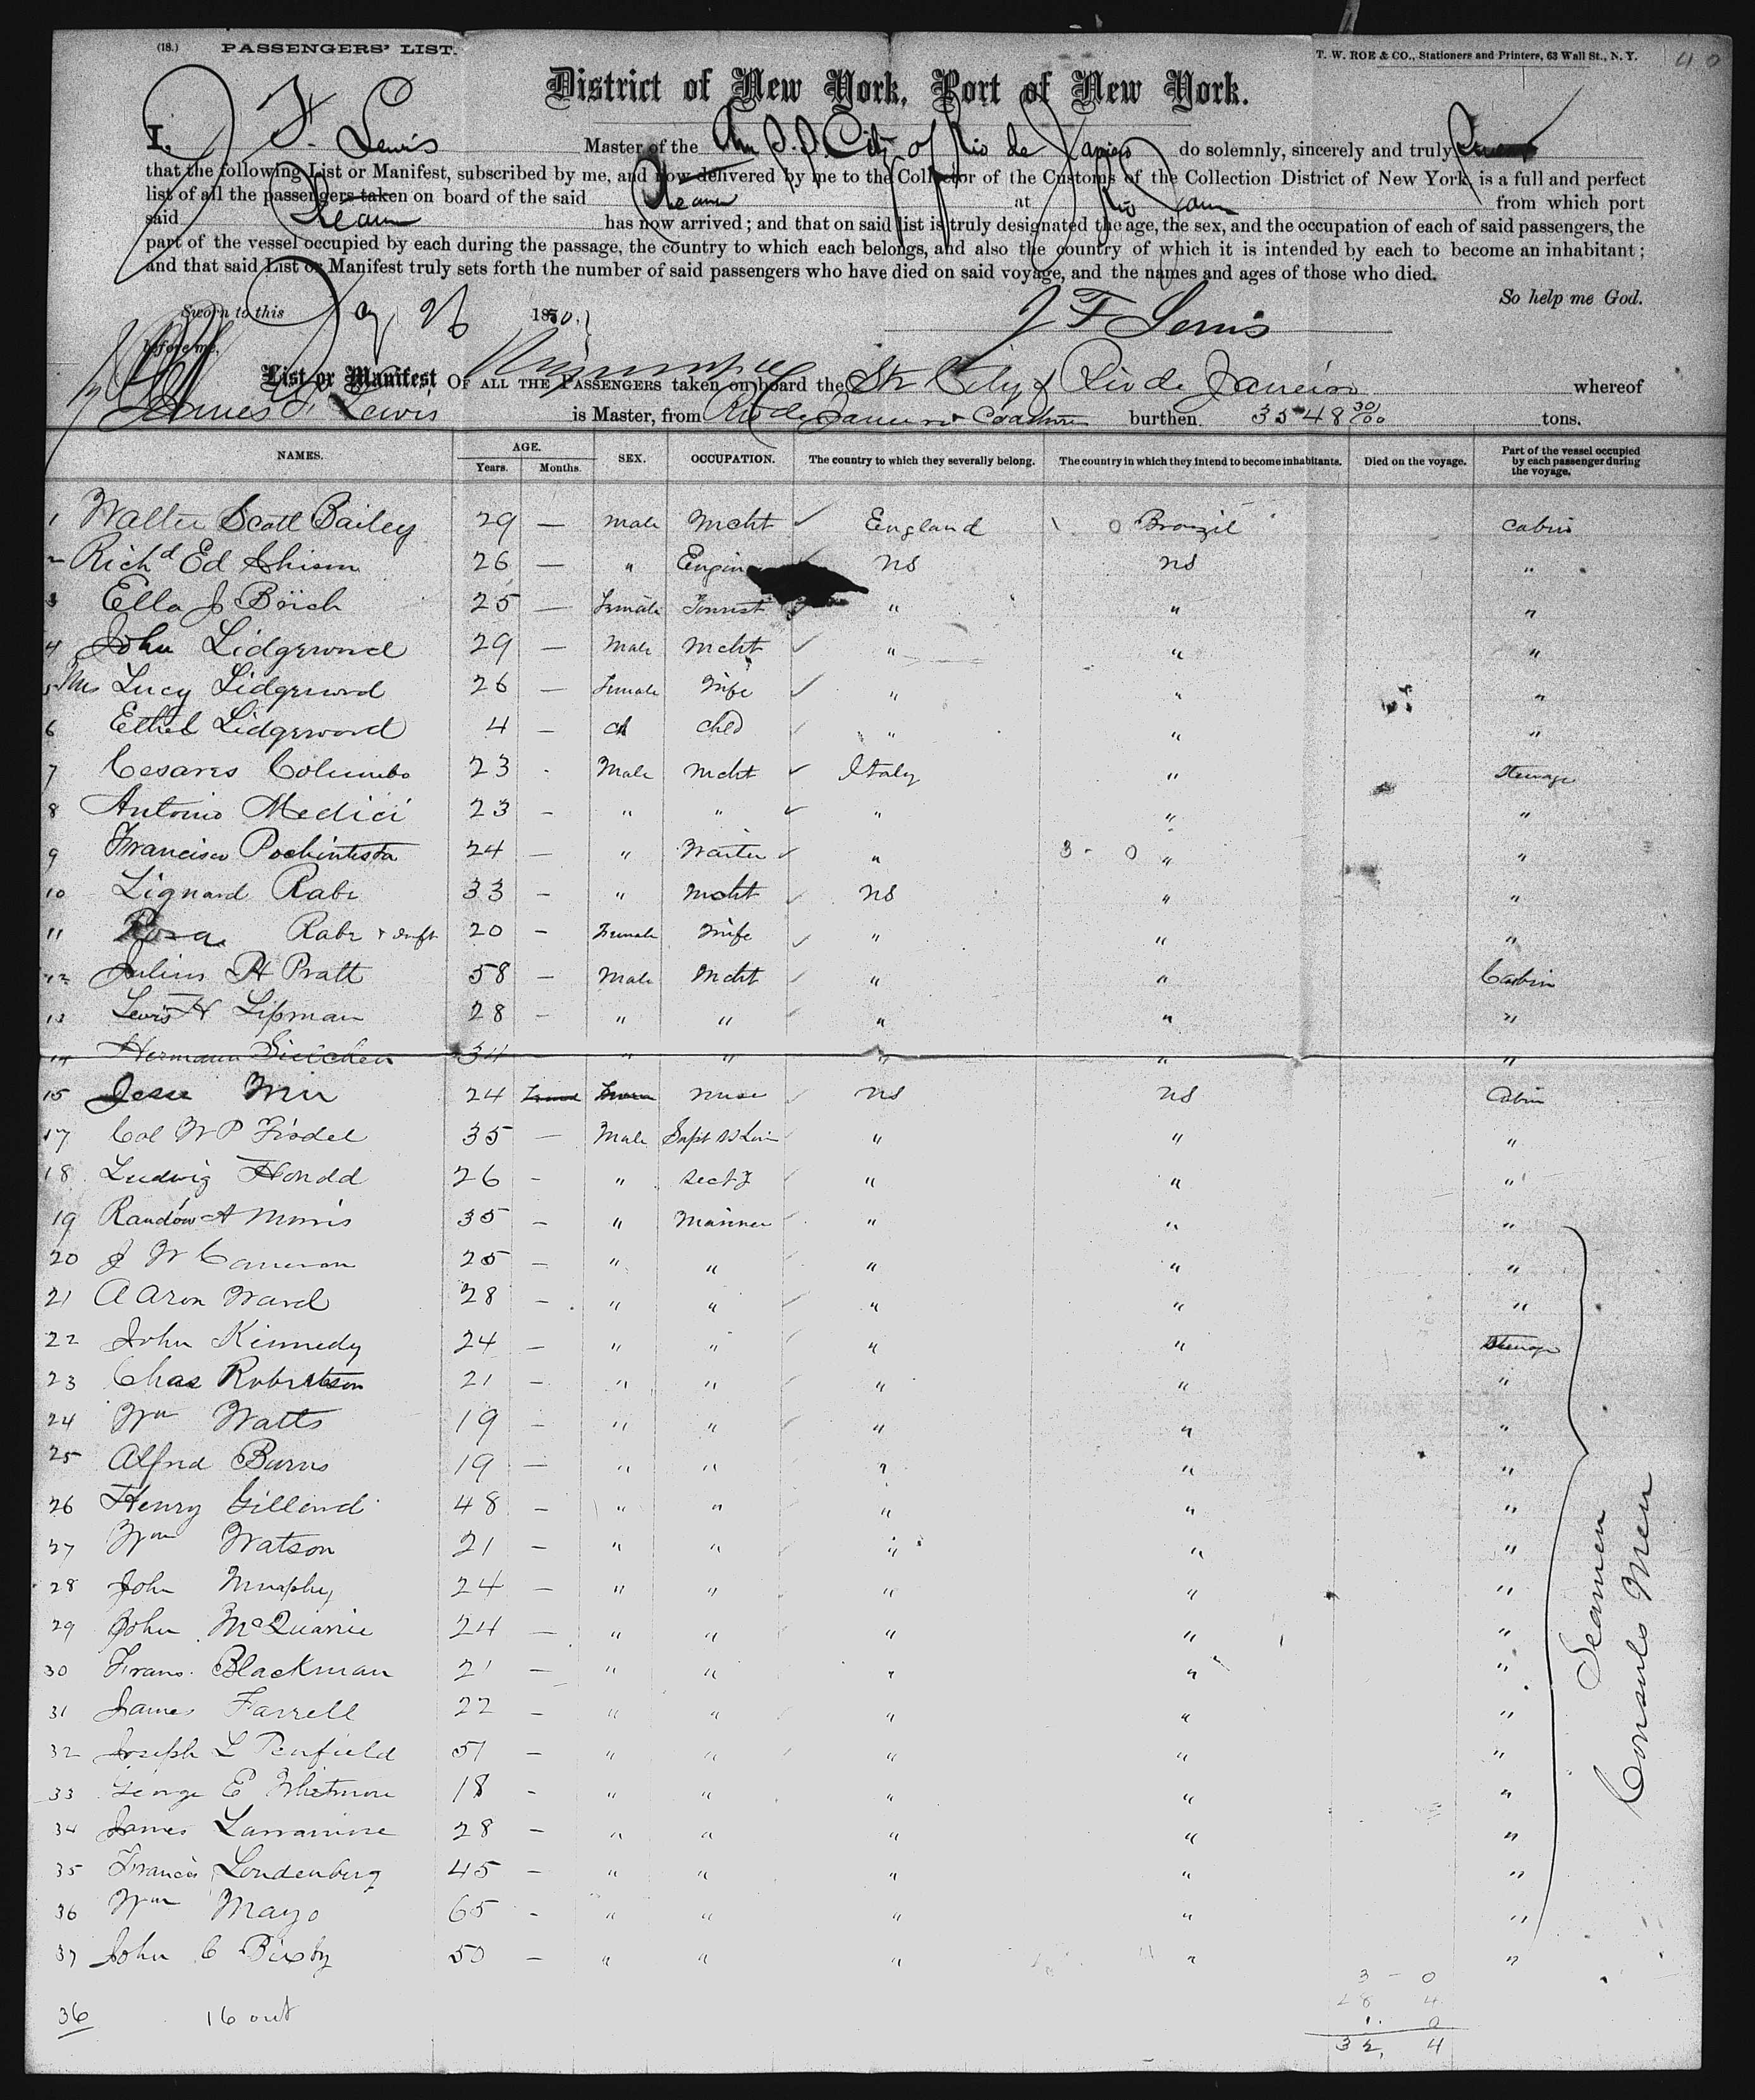 (18.) PASSENGERS' LIST.
T. W. ROE & CO., Stationers and Printers, 63 Wall St., N. Y.
District of New York, Port of New York.
I, J. F. Lewis Master of the Am S.S. City of Rio de Janeiro do solemnly, sincerely and truly Swear
that the following List or Manifest, subscribed by me, and now delivered by me to the Collector of the Customs of the Collection District of New York, is a full and perfect
list of all the passengers taken on board of the said Steamer at Rio Janeiro from which port
said Steamer has now arrived; and that on said list is truly designated the age, the sex, and the occupation of each of said passengers, the
part of the vessel occupied by each during the passage, the country to which each belongs, and also the country of which it is intended by each to become an inhabitant;
and that said List or Manifest truly sets forth the number of said passengers who have died on said voyage, and the names and ages of those who died.
So help me God.
Sworn to this 26 1880,
J F Lewis
before me,
List or Manifest OF ALL THE PASSENGERS taken on board the Str City of Rio de Janeiro whereof
James F. Lewis is Master, from Rio de Janeiro burthen 3548 30/100 tons.
NAMES. AGE. Years. Months. SEX. OCCUPATION. The country to which they severally belong. The country in which they intend to become inhabitants. Died on the voyage. Part of the vessel occupied by each passenger during the voyage.
1 Walter Scott Bailey 29 — male Mcht England 0 Brazil Cabin
2 Richd Ed 26 — " Engin US US "
3 Ella J 25 — Female Tourist " " "
4 John Lidgerwood 29 — Male Mcht " " "
5 Mrs Lucy Lidgerwood 26 — Female Wife " " "
6 Ethel Lidgerwood 4 — ch chld " " "
7 Cesares Columbo 23 - Male Mcht Italy " Steerage
8 Antonio Medici 23 — " " " " "
9 Francisco 24 — " Waiter " 3 - 0 " "
10 Rabe 33 — " Mcht US " "
11 Rosa Rabe & inft 20 — Female Wife " " "
12 Julius H Pratt 58 — Male Mcht " " Cabin
13 Lewis H Lipman 28 — " " " " "
14 Hermann Sielcken 34 " " " " "
15 24 nurse US US Cabin
17 Col W P 35 — Male Supt " " "
18 Ludwig 26 — " Secty " " "
19 A Morris 35 — " Mariner " " "
20 J W Cameron 25 — " " " " "
21 Aaron Ward 28 — " " " " "
22 John Kennedy 24 — " " " " Steerage
23 Chas Robertson 21 — " " " " "
24 Wm Watts 19 — " " " " "
25 Alfred Burns 19 — " " " " "
26 Henry Gilland 48 — " " " " "
27 Wm Watson 21 — " " " " "
28 John Murphy 24 — " " " " "
29 John McQuarrie 24 — " " " " "
30 Frans. Blackman 21 — " " " " "
31 James Farrell 22 — " " " " "
32 Joseph L Penfield 51 — " " " " "
33 George E Whitmore 18 - " " " " "
34 James Larramine 28 — " " " " "
35 Francis Londenberg 45 — " " " " "
36 Wm Mayo 65 - " " " " "
37 John C Bixby 50 — " " " " "
Seamen
Consuls Men
3 - 0
28 4
1. 0
32, 4
36 16 out